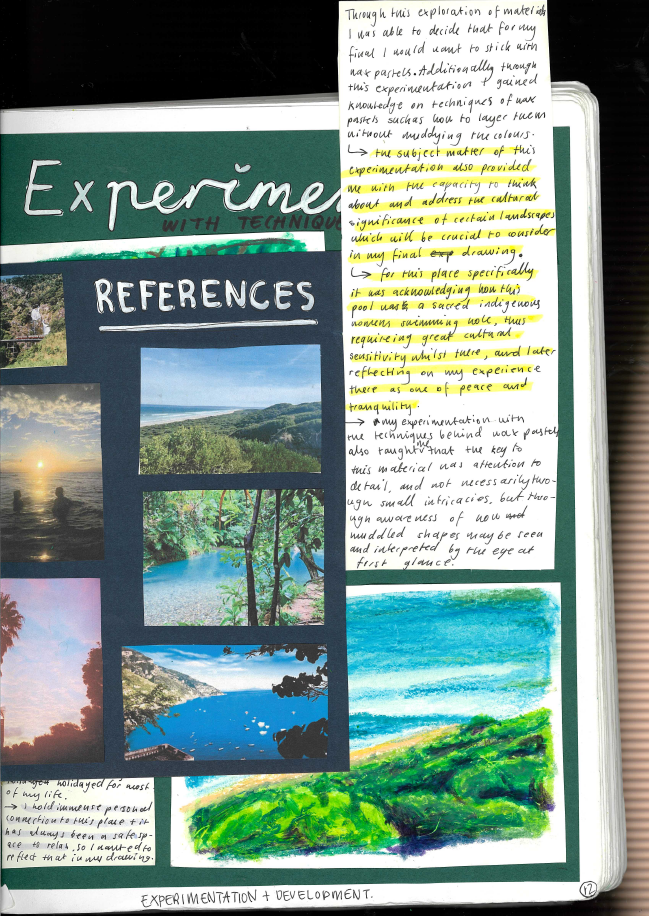 Through this exploration of materials
I was able to decide that for my
final I would want to stick with
wax pastels. Additionally through
this experimentation I gained
knowledge on techniques of wax
pastels such as how to layer them
without muddying the colours.
↳ the subject matter of this
experimentation also provided
me with the capacity to think
about and address the cultural
significance of certain landscapes
which will be crucial to consider
in my final exp drawing.
↳ for this place specifically
it was acknowledging how this
pool was a sacred indigenous
womens swimming hole, thus
requireing great cultural
sensitivity whilst there, and later
reflecting on my experience
there as one of peace and
tranquility.
→ my experimentation with
the techniques behind wax pastels
also taught me that the key to
this material was attention to
detail, and not necessarily thro-
ugh small intricacies, but thro-
ugh awareness of how
muddled shapes may be seen
and interpreted by the eye at
first glance.
Experime
WITH TECHNIQU
REFERENCES
holidayed for most
of my life.
→ I hold immense personal
connection to this place + it
has always been a safe sp-
ace to relax, so I wanted to
reflect that in my drawing.
EXPERIMENTATION + DEVELOPMENT.
12